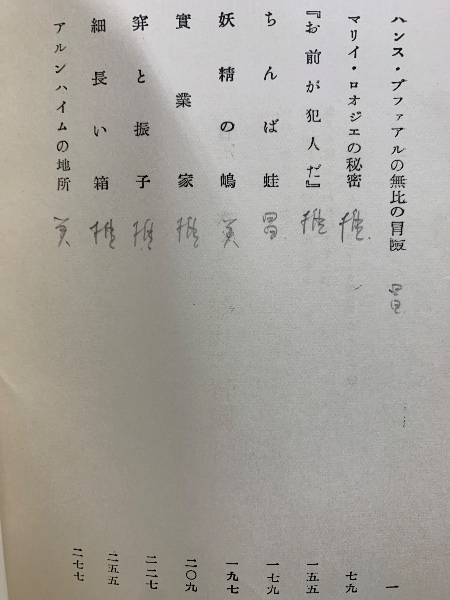 ハンス・プファアルの無比の冒險 冒 一
マリイ・ロオジエの秘密 推 七九
『お前が犯人だ』 推 一五五
ちんば蛙 冒 一七九
妖精の嶋 美 一九七
實業家 推 二〇九
穽と振子 推 二二七
細長い箱 推 二五五
アルンハイムの地所 美 二七七